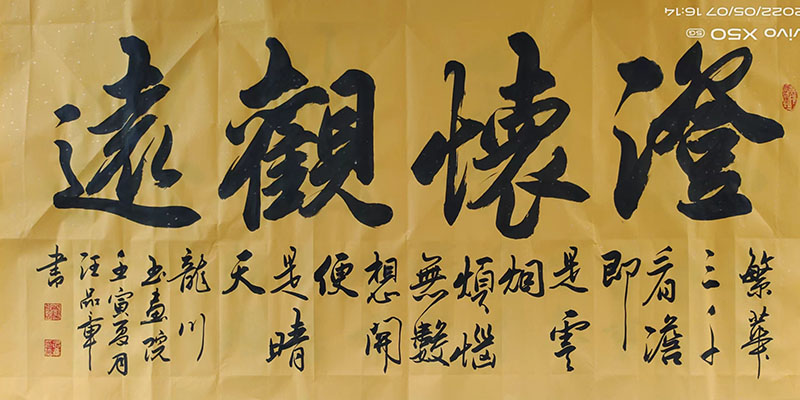 澄懷觀遠
繁華
三千
看澹
即
是雲
烟
煩惱
無數
想開
便
是晴
天
龍川
書畫院
壬寅夏月
汪品章
書
vivo X50 5G
2022/05/07 16:14